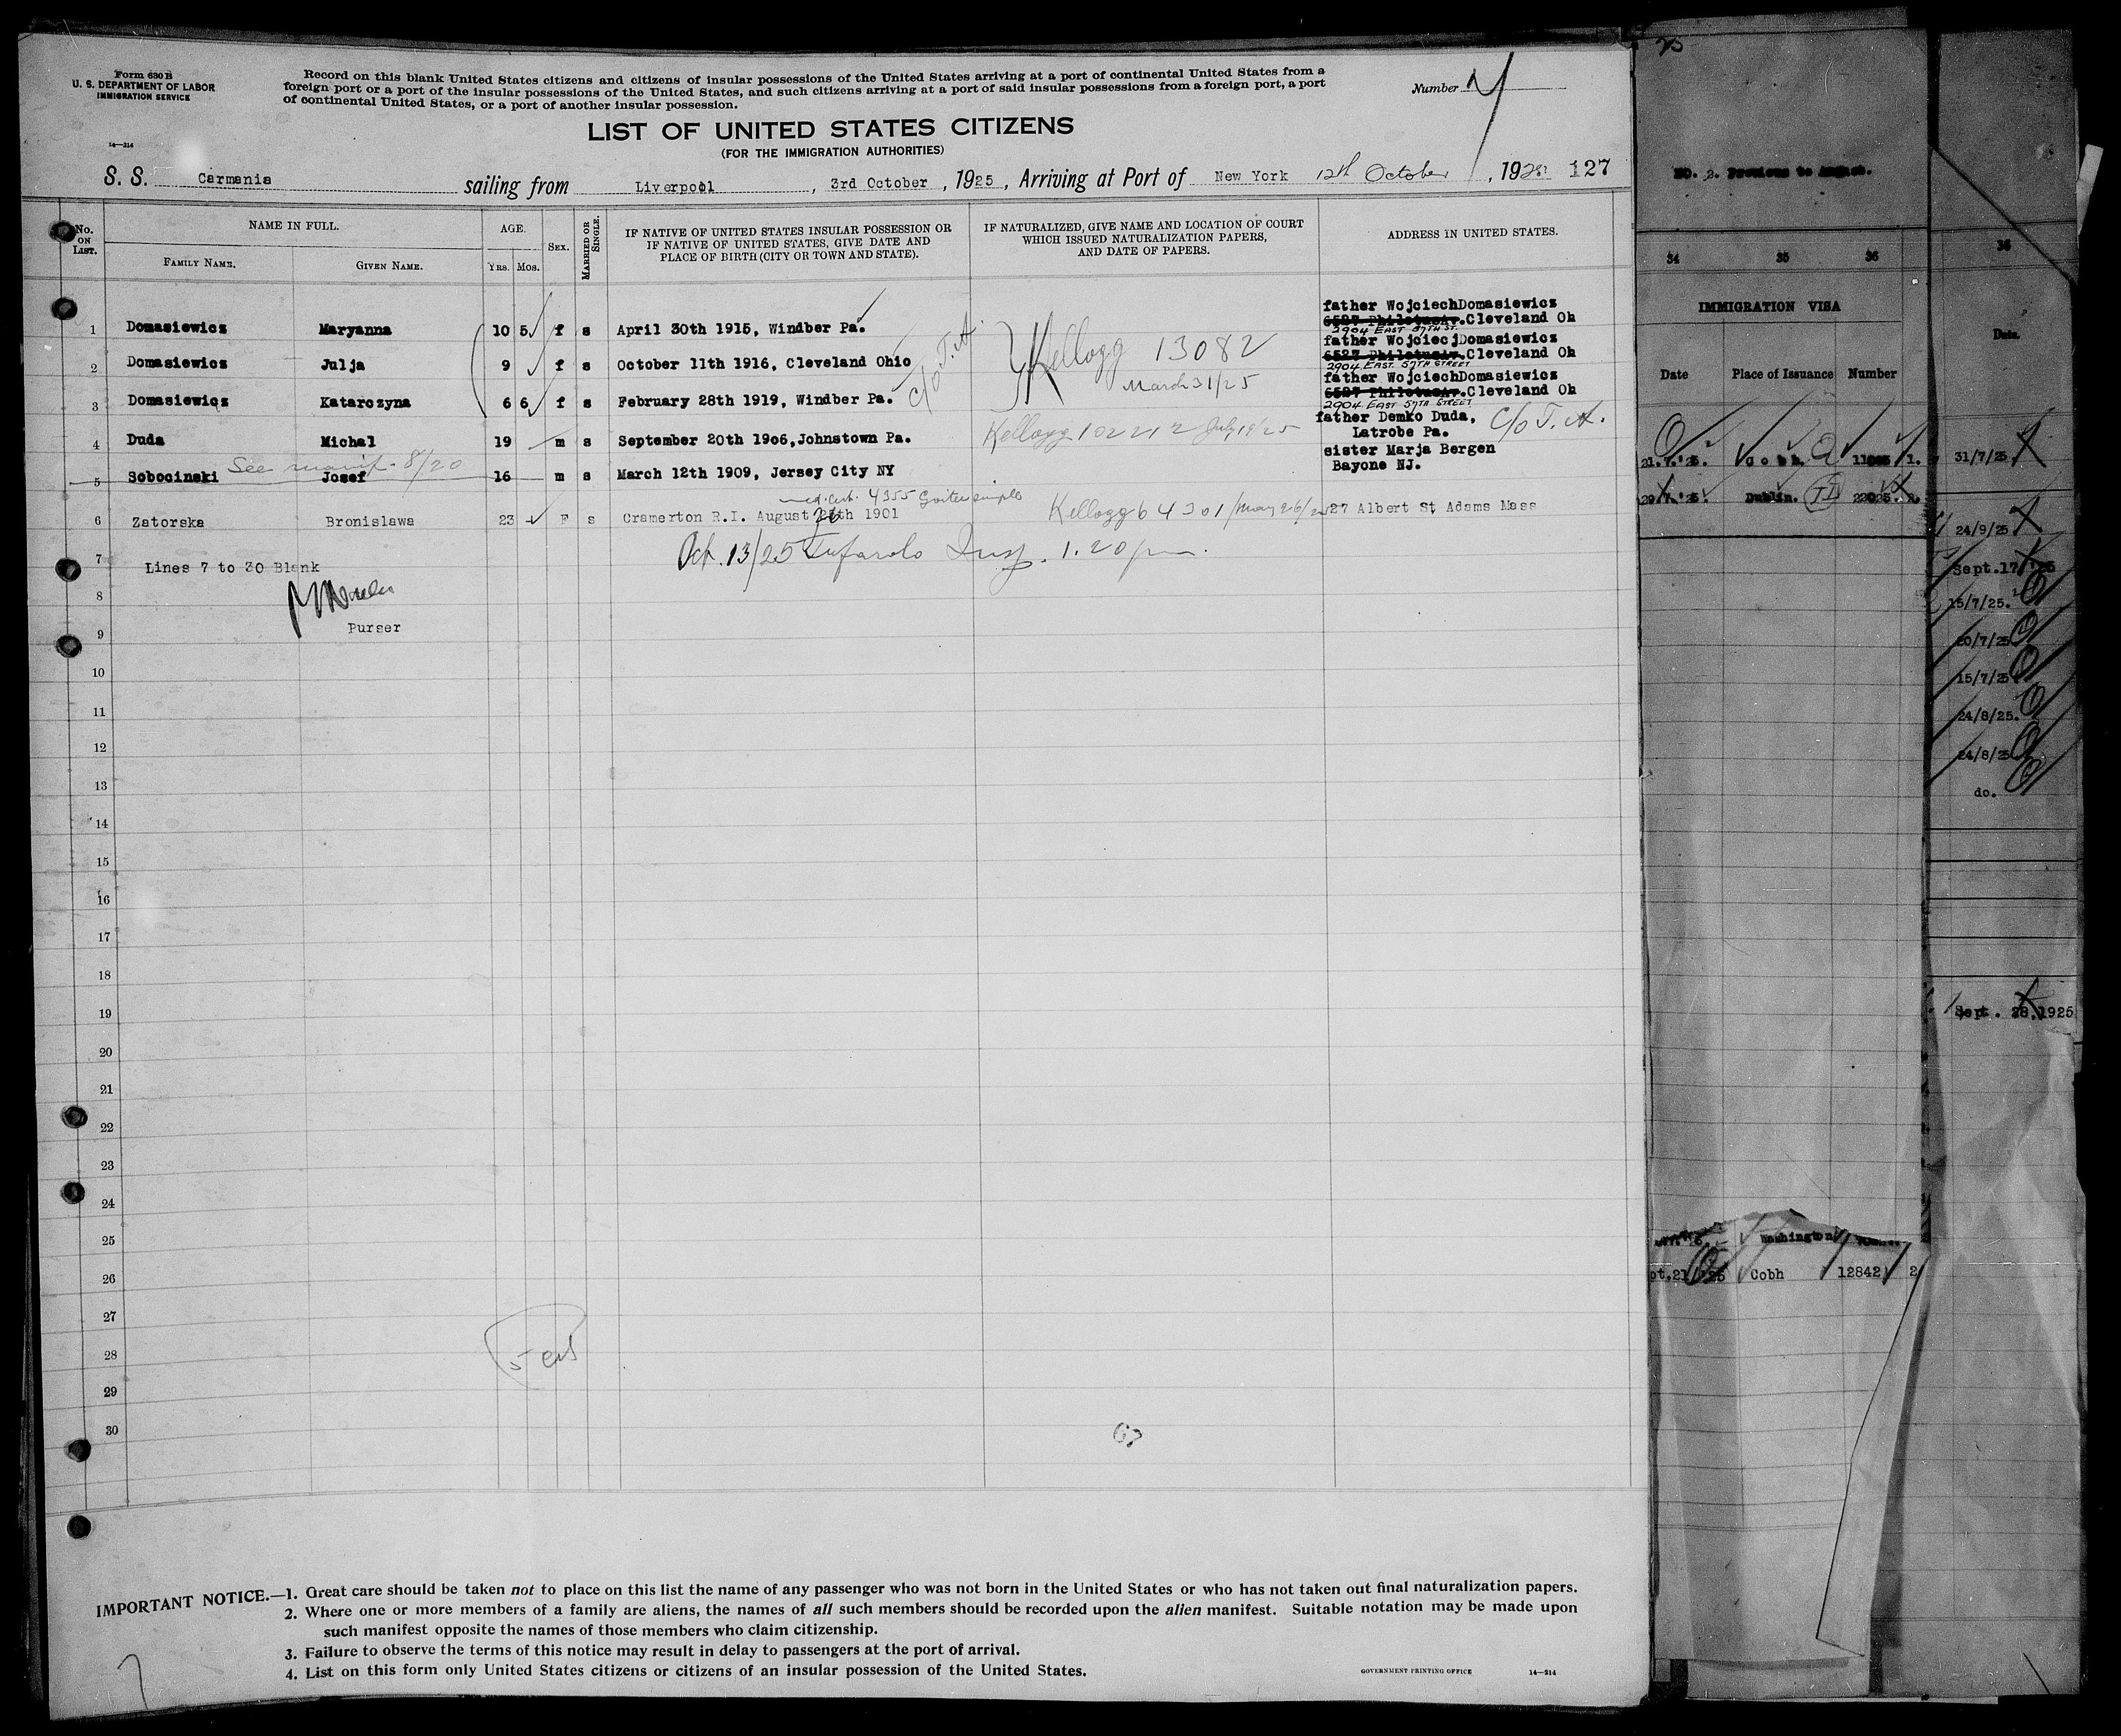 Form 630 B
U. S. DEPARTMENT OF LABOR
IMMIGRATION SERVICE
14—214
Record on this blank United States citizens and citizens of insular possessions of the United States arriving at a port of continental United States from a
foreign port or a port of the insular possessions of the United States, and such citizens arriving at a port of said insular possessions from a foreign port, a port
of continental United States, or a port of another insular possession.
Number
LIST OF UNITED STATES CITIZENS
(FOR THE IMMIGRATION AUTHORITIES)
S. S. Carmania sailing from Liverpool, 3rd October, 1925, Arriving at Port of New York 12th October, 1925 127
No. ON LIST.
NAME IN FULL.
FAMILY NAME.
GIVEN NAME.
AGE.
YRS.
MOS.
SEX.
MARRIED OR SINGLE.
IF NATIVE OF UNITED STATES INSULAR POSSESSION OR
IF NATIVE OF UNITED STATES, GIVE DATE AND
PLACE OF BIRTH (CITY OR TOWN AND STATE).
IF NATURALIZED, GIVE NAME AND LOCATION OF COURT
WHICH ISSUED NATURALIZATION PAPERS,
AND DATE OF PAPERS.
ADDRESS IN UNITED STATES.
father WojciechDomasiewicz
1 Domasiewicz Maryanna 10 5 f s April 30th 1915, Windber Pa. Cleveland Oh
2904 EAST 57TH ST.
father WojciecjDomasiewicz
2 Domasiewicz Julja 9 f s October 11th 1916, Cleveland Ohio c/o T. A. Kellogg 13082 Cleveland Oh
2904 EAST 57TH STREET
March 31/25
father WojciechDomasiewicz
3 Domasiewicz Katarczyna 6 6 f s February 28th 1919, Windber Pa. Cleveland Oh
2904 EAST 57TH STREET
father Demko Duda, c/o T. A.
4 Duda Michal 19 m s September 20th 1906,Johnstown Pa. Kellogg 102212 July 19/25 Latrobe Pa.
See manif. 8/20
sister Marja Bergen
5 Sobocinski Josef 16 m s March 12th 1909, Jersey City NY Bayone NJ.
med. cert. 4355 Goiter simple
6 Zatorska Bronislawa 23 F s Cramerton R.I. August 26th 1901 Kellogg 64301/May 26/25 27 Albert St Adams Mass
Oct. 13/25 Insp. 1.20 pm.
7 Lines 7 to 30 Blank
8
Purser
9
10
11
12
13
14
15
16
17
18
19
20
21
22
23
24
25
26
27
28
29
30
67
IMPORTANT NOTICE.—1. Great care should be taken not to place on this list the name of any passenger who was not born in the United States or who has not taken out final naturalization papers.
2. Where one or more members of a family are aliens, the names of all such members should be recorded upon the alien manifest. Suitable notation may be made upon
such manifest opposite the names of those members who claim citizenship.
3. Failure to observe the terms of this notice may result in delay to passengers at the port of arrival.
4. List on this form only United States citizens or citizens of an insular possession of the United States.
GOVERNMENT PRINTING OFFICE 14—214
NO. 2. Previous to August.
34 35 36
IMMIGRATION VISA
Date Place of Issuance Number
21.7.'25. Cobh. 1.
29.7.'25. Dublin. 22025. 2.
Washington
pt.21/'25 Cobh 12842 2
36
Date.
31/7/25
24/9/25
Sept.17/'25
15/7/25.
20/7/25
15/7/25
24/8/25.
24/8/25
do.
Sept. 28,1925